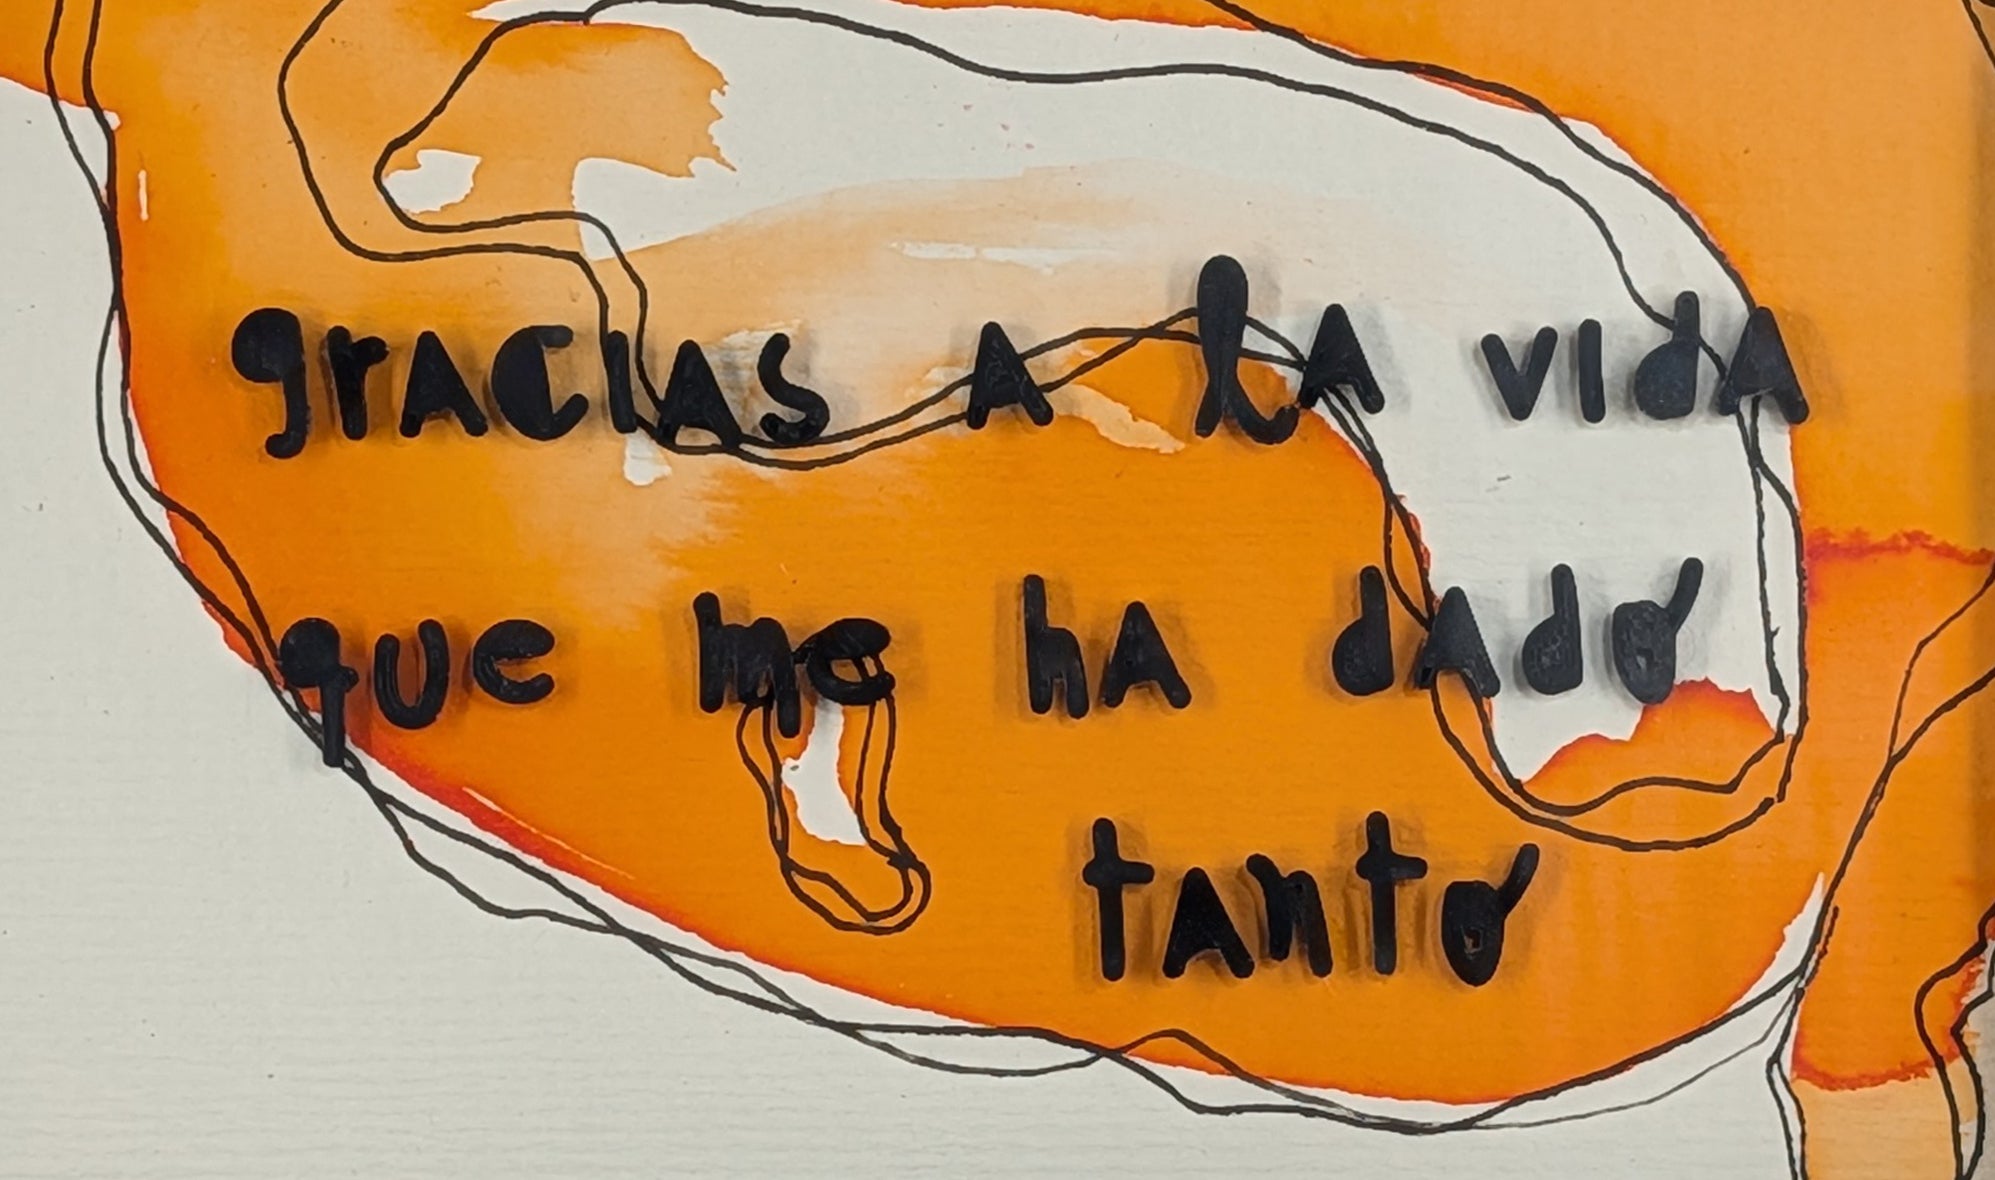 gracias a la vida
que me ha dado
tanto